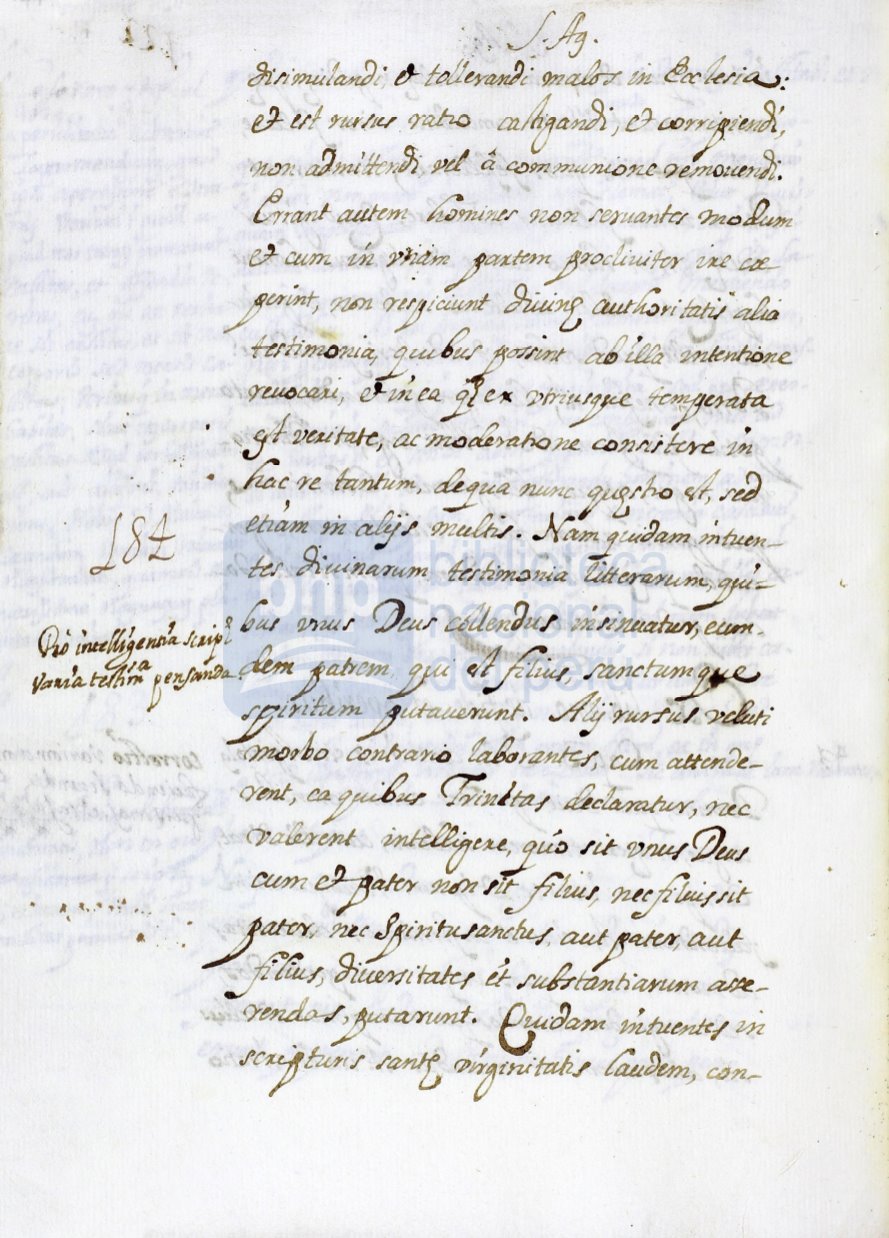 S. Ag.
disimulandi, et tollerandi malos in Ecclesia:
et est rursus ratio castigandi, et corripiendi,
non admittendi vel â communione removendi.
Errant autem homines non servantes modum
et cum in vnam partem procliviter ire cœ-
perint, non respiciunt divinę authoritatis alia
testimonia, quibus possint ab illa intentione
revocari, et in ea q̃ ex vtriusque temperata
est veritate, ac moderatione consistere in
hac re tantum, de qua nunc quęstio est, sed
etiam in alijs multis. Nam quidam intuen-
184
tes divinarum testimonia litterarum, qui-
bus vnus Deus collendus insinuatur, eum-
Pro intelligentia script.
dem patrem, qui est filius, sanctumque
varia testim.a pensanda
spiritum putaverunt. Alij rursus veluti
morbo contrario laborantes, cum attende-
rent, ea quibus Trinitas declaratur, nec
valerent intelligere, quo sit vnus Deus
cum et pater non sit filius, nec filius sit
pater, nec Spiritusanctus, aut pater, aut
filius, diversitates et substantiarum asse-
rendas, putarunt. Quidam intuentes in
scripturis santę virginitatis laudem, con-
bnp biblioteca
nacional
del perú